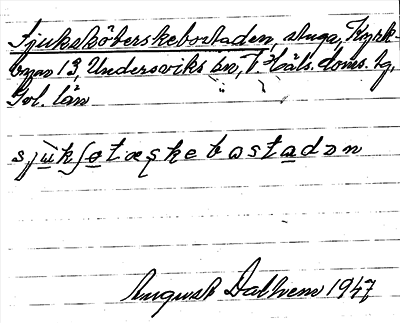 Sjuksköterskebostaden, stuga, Kyrk-
byn 13, Undersviks sn, V. Häls. doms. tg,
Gvl. län
sjùkʃøtæşkebostadən
August Dalhem 1947